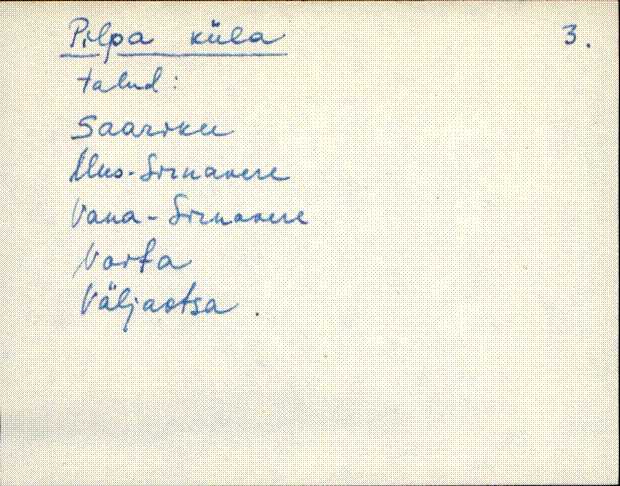 Pilpa küla 3.
talud:
Saariku
Uus-Sirnavere
Vana-Sirnavere
Vorfa
Väljaotsa.